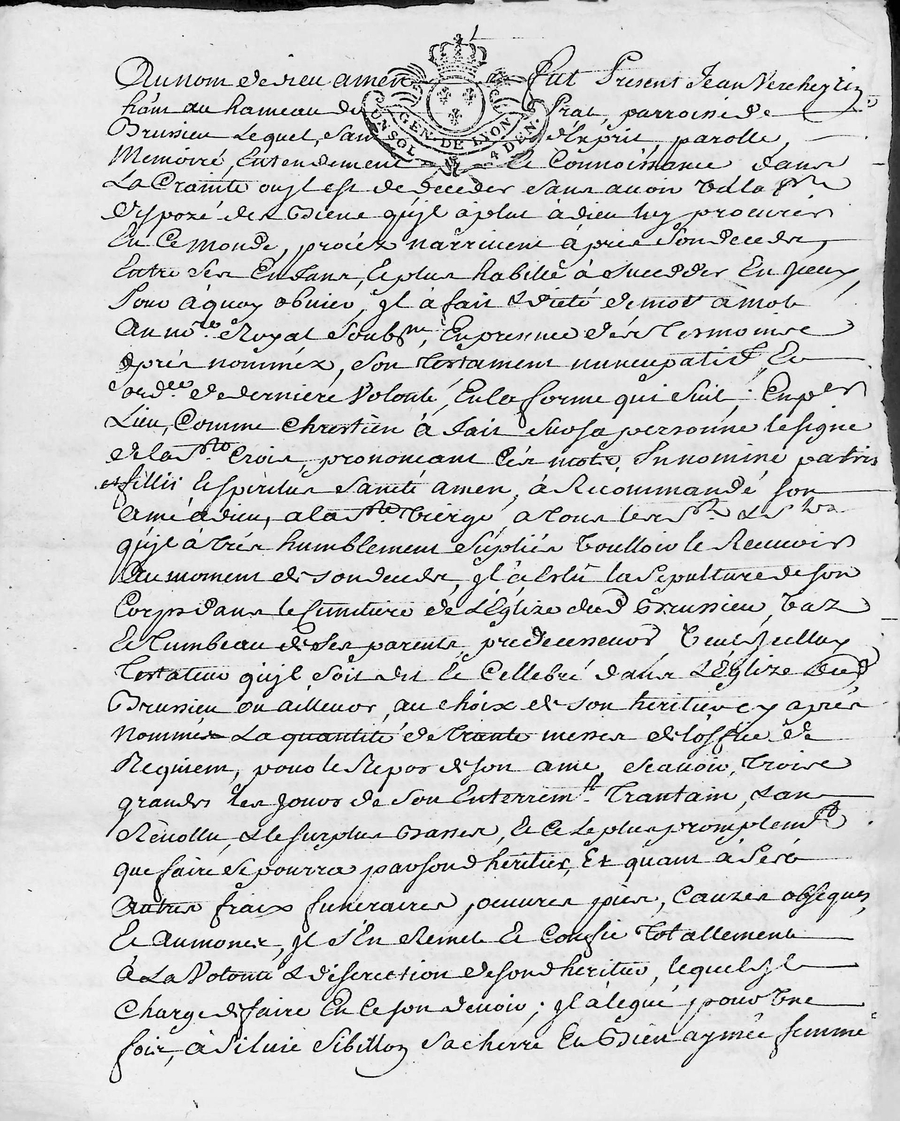 Au nom de dieu amen Fut Present Jean Verchery
au hameau du Prat, parroisse de
Brussieu Lequel, sain d'Esprit parolle,
GEN. DE LYON
UN SOL 4 DEN.
Memoire, Entendement et Connoissance dans
La Crainte ou jl est de deceder sans avoir
disposé des Biens qu'jl a plut à dieu luy procurer
En ce monde, procéz n'arrivent àprés son decedz,
Entre ses Enfans, Le plus habille à succeder En jceux
Pour à quoy obvier, jl à fait & dicté de mot à mot
Au nore. Royal soubsne, En presence des Tesmoins
àprés nomméz, son Testament nuncupatif, Et
ordce. de derniere Volonté, En la forme qui suit. En per
Lieu, Comme Chrestien à fait sur sa personne le signe
de la Ste Croix, prononcant Cés mots, In nomine patris
et fillii et spiritus Sancti amen, à Recommandé son
Ame à dieu, a la Ste Vierge, a tous les Sts & Stes
qu'jl à trés humblement suppliés Voulloir le Recevoir
Au moment de son decedz, jl à Eslu la sepulture de son
Corps dans le Cimitiere de L'Eglize dud Brussieu, Vaz
Et Tumbeau de ses parents, predecesseurs Veut jcelluy
Testateur qu'jl soit dit et Cellebré dans L'Eglize dud
Brussieu ou àilleurs, au choix de son heritier cy aprés
Nommé La quantité de trante messes de l'office de
Requiem, pour le Repos de son ame, scavoir, Trois
grandes les jours de son Enterremt. Trantain, & an
Révollu, & le surplus basses, Et ce le plus promptemt
que faire se pourra par sond heritier, Et quant à Ses
Autres fraix funeraires, oeuvres pies, Cauzes obseques,
Et Aumones, jl s'En Remet Et Confie totallement
à La Volonté & discrection de sond heritier, lequel jl
Charge de faire En ce son devoir; jl à légué, pour Une
fois, à Silvie Sibillon sa cherre Et Bien aymée femme